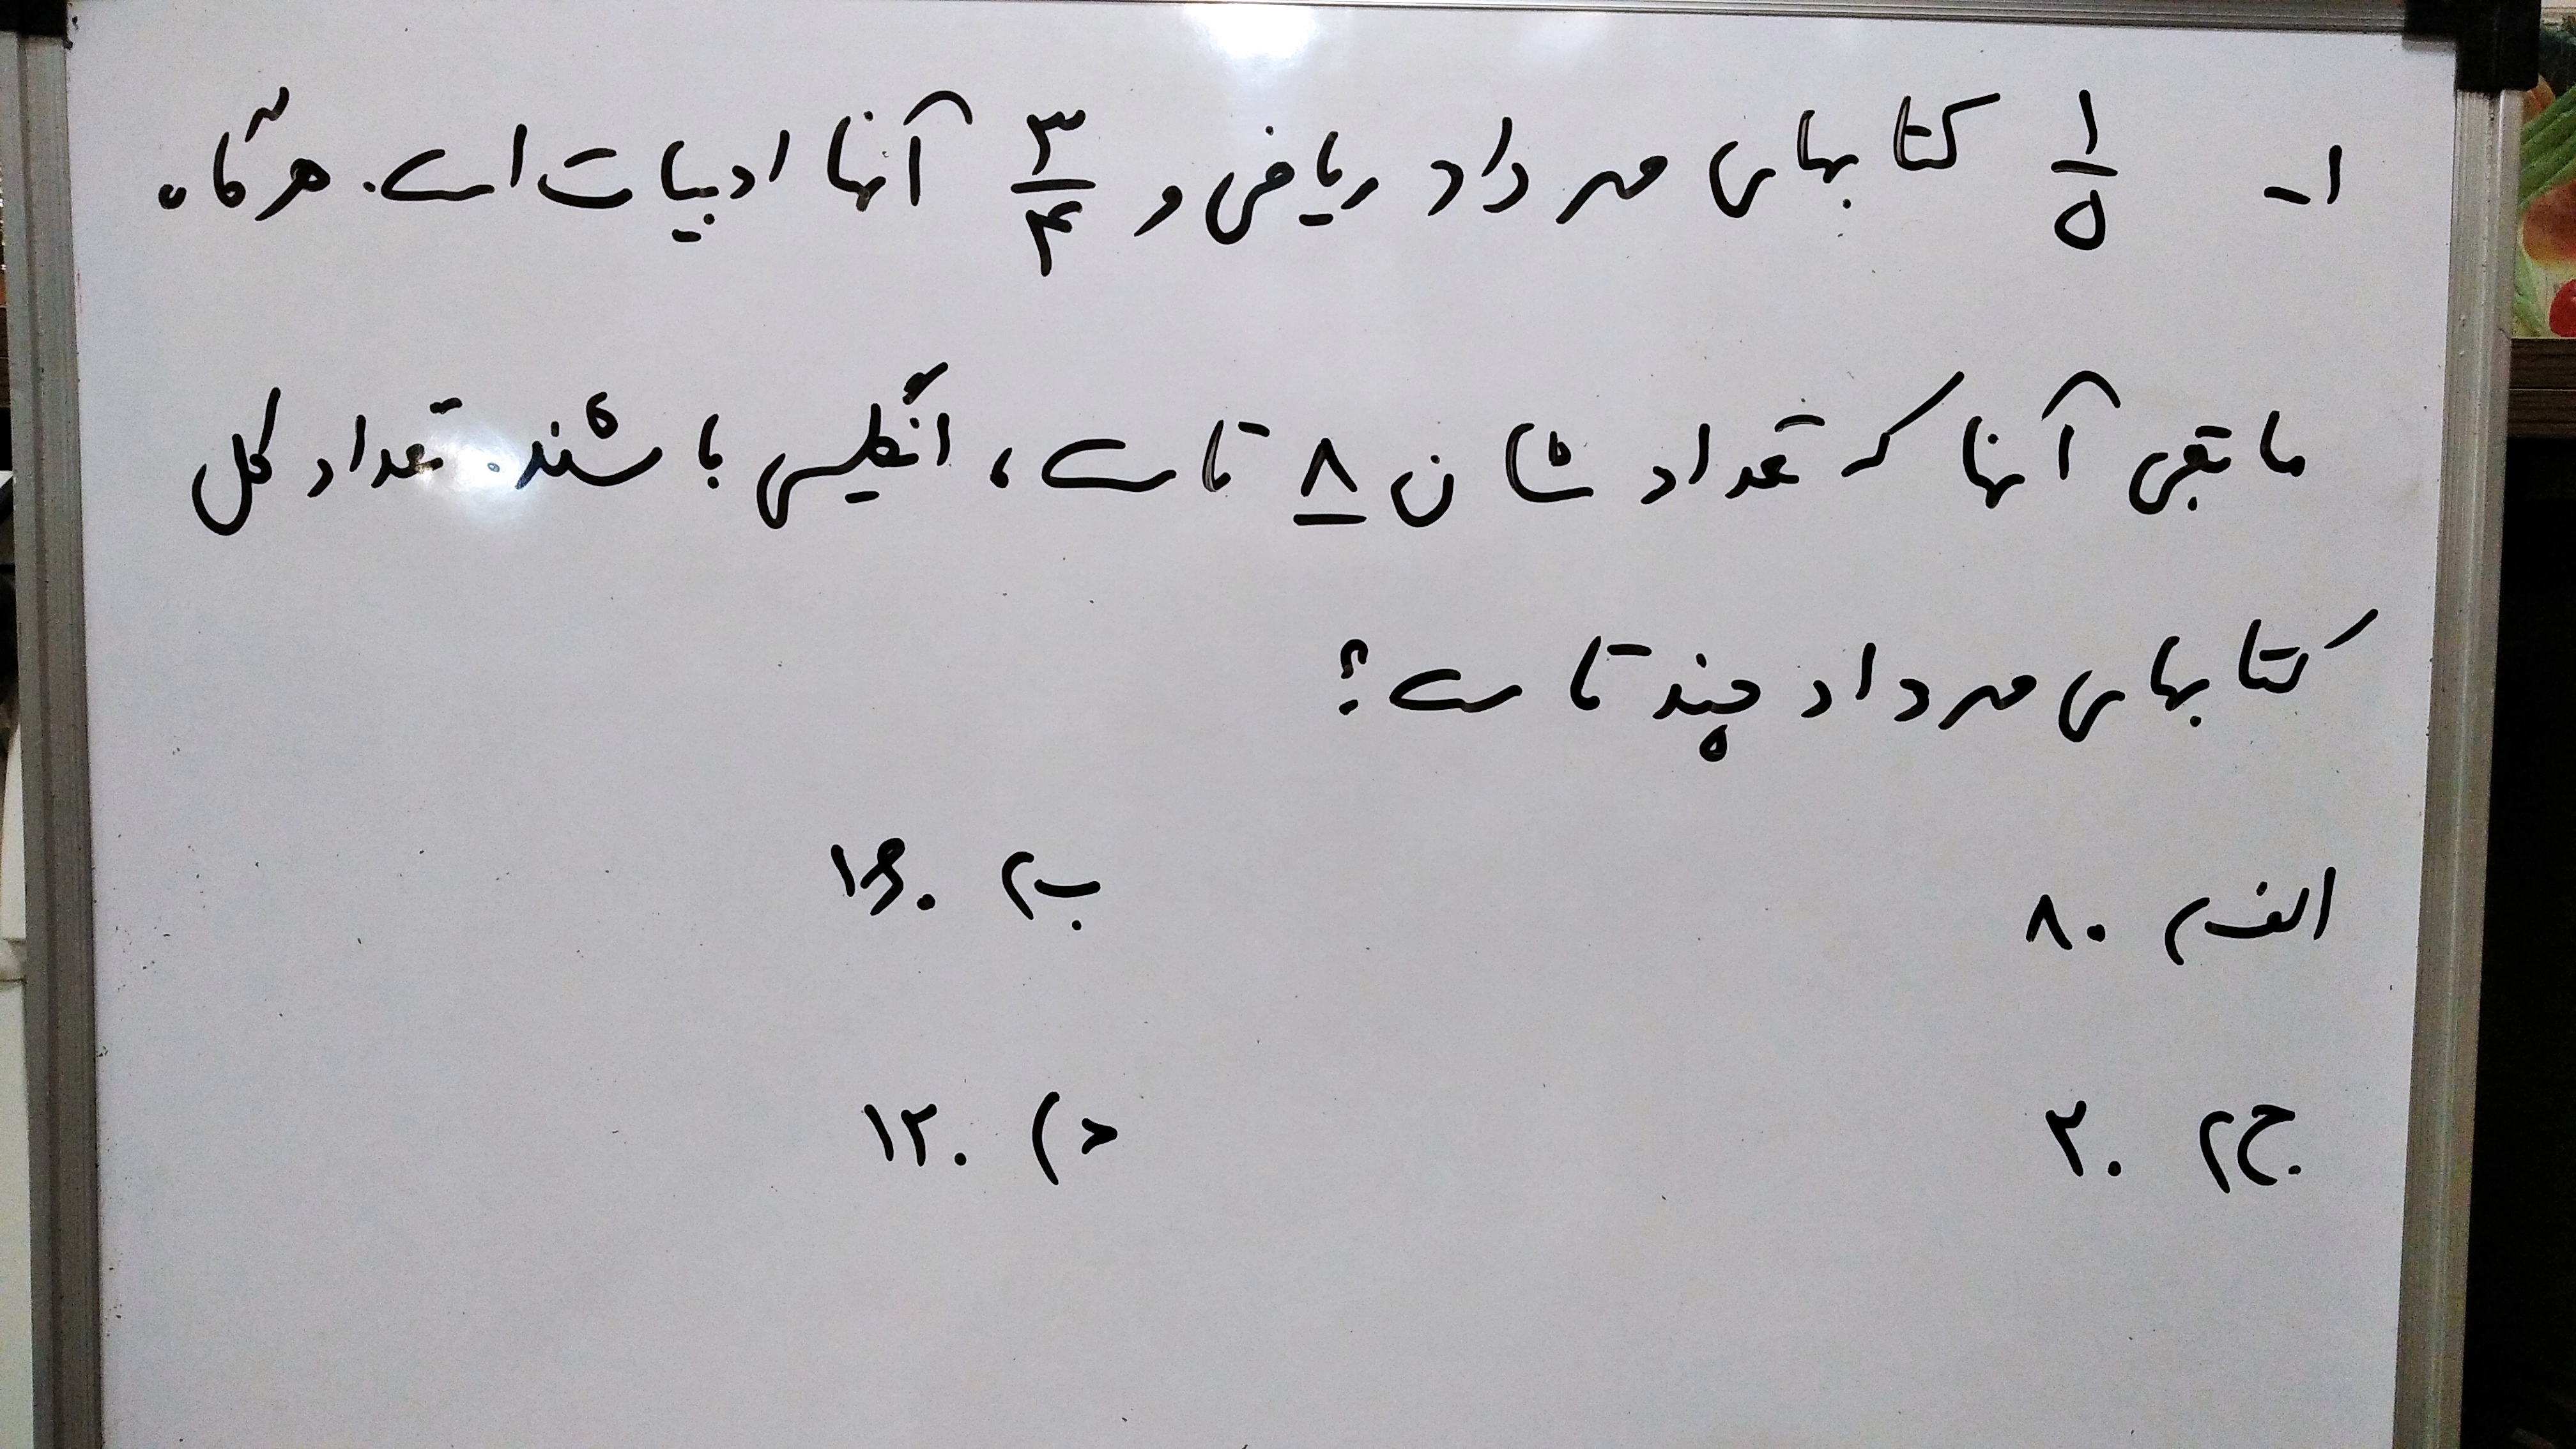 ۱- ۱/۵ کتابهای مهرداد ریاضی و ۳/۴ آنها ادبیات است. هرگاه
مابقی آنها که تعدادشان ۸ تاست، انگلیسی باشند. تعداد کل
کتابهای مهرداد چند تاست؟
الف) ۸۰ ب) ۱۶۰
ج) ۲۰ د) ۱۲۰